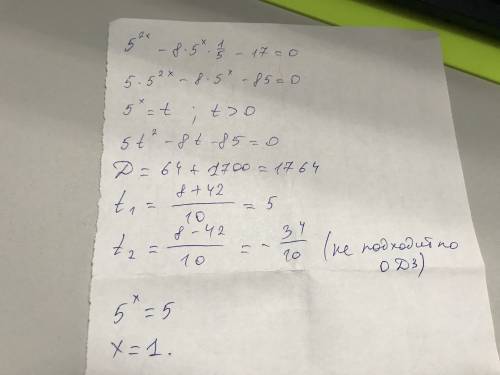 5^{2x} - 8 · 5^x · 1/5 - 17 = 0
5 · 5^{2x} - 8 · 5^x - 85 = 0
5^x = t ; t > 0
5t^2 - 8t - 85 = 0
D = 64 + 1700 = 1764
t_1 = (8 + 42)/10 = 5
t_2 = (8 - 42)/10 = - 34/10 (не подходит по
ОДЗ)
5^x = 5
x = 1.